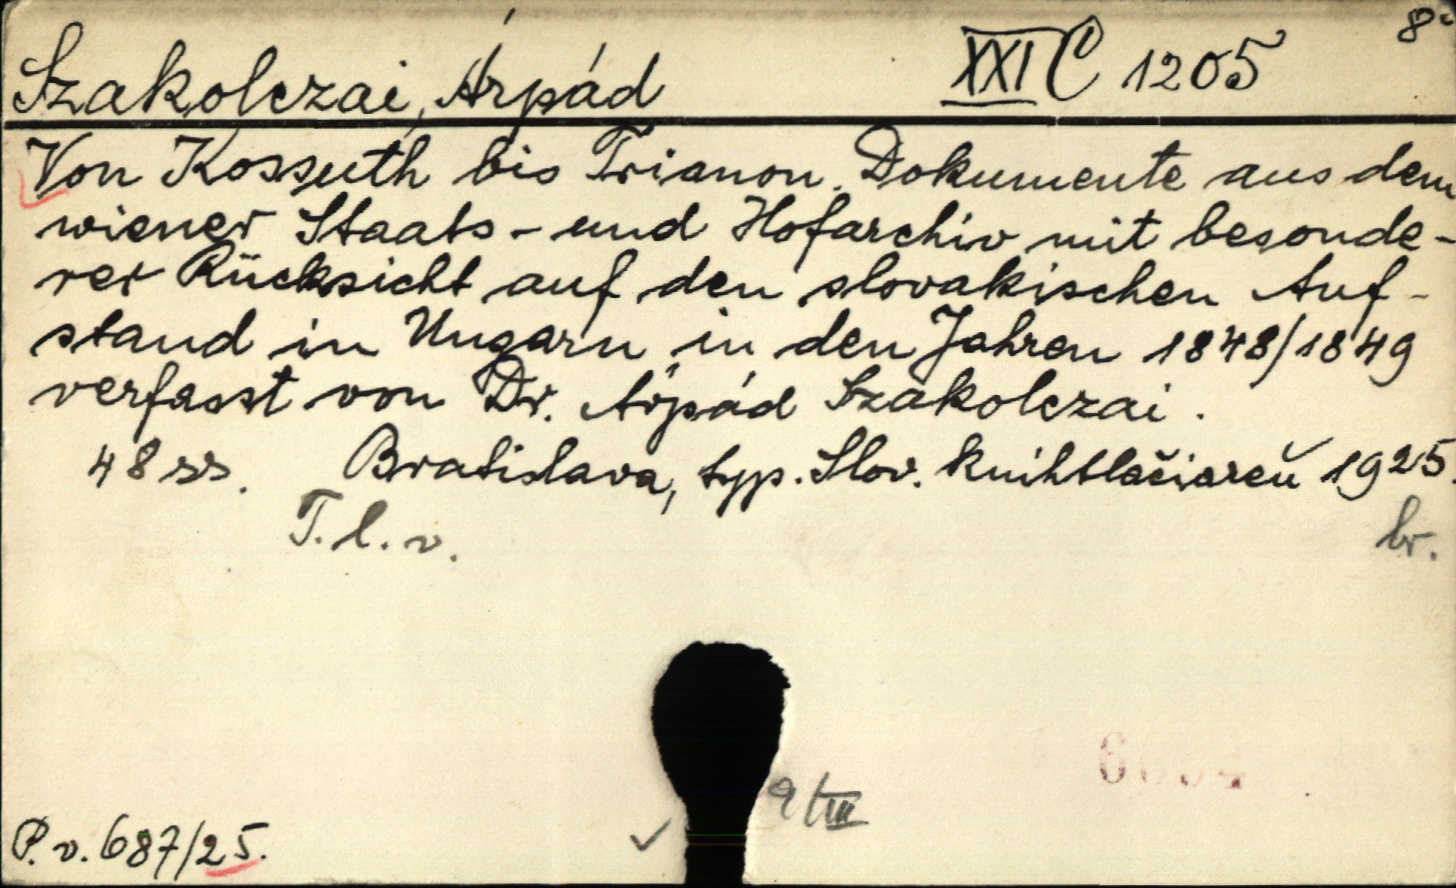 Szakolczai, Árpád XXI C 1205 8°
Von Kossuth bis Trianon. Dokumente aus dem
wiener Staats- und Hofarchiv mit besonde-
rer Rücksicht auf den slovakischen Auf-
stand in Ungarn in den Jahren 1848/1849
verfasst von Dr. Árpád Szakolczai.
48 ss. Bratislava, typ. Slov. knihtlačiareň 1925.
T. l. v. br.
P. v. 687/25.